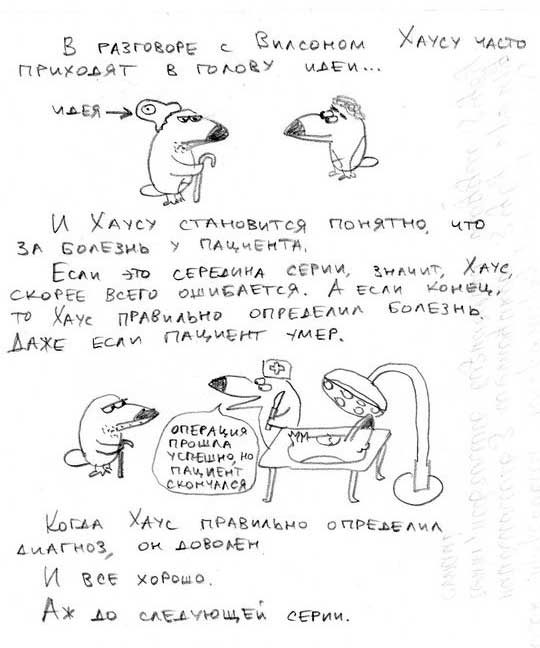 В РАЗГОВОРЕ С ВИЛСОНОМ ХАУСУ ЧАСТО
ПРИХОДЯТ В ГОЛОВУ ИДЕИ...
ИДЕЯ
И ХАУСУ СТАНОВИТСЯ ПОНЯТНО, ЧТО
ЗА БОЛЕЗНЬ У ПАЦИЕНТА.
ЕСЛИ ЭТО СЕРЕДИНА СЕРИИ, ЗНАЧИТ, ХАУС,
СКОРЕЕ ВСЕГО ОШИБАЕТСЯ. А ЕСЛИ КОНЕЦ,
ТО ХАУС ПРАВИЛЬНО ОПРЕДЕЛИЛ БОЛЕЗНЬ.
ДАЖЕ ЕСЛИ ПАЦИЕНТ УМЕР.
ОПЕРАЦИЯ
ПРОШЛА
УСПЕШНО, НО
ПАЦИЕНТ
СКОНЧАЛСЯ
КОГДА ХАУС ПРАВИЛЬНО ОПРЕДЕЛИЛ
ДИАГНОЗ, ОН ДОВОЛЕН.
И ВСЕ ХОРОШО.
АЖ ДО СЛЕДУЮЩЕЙ СЕРИИ.